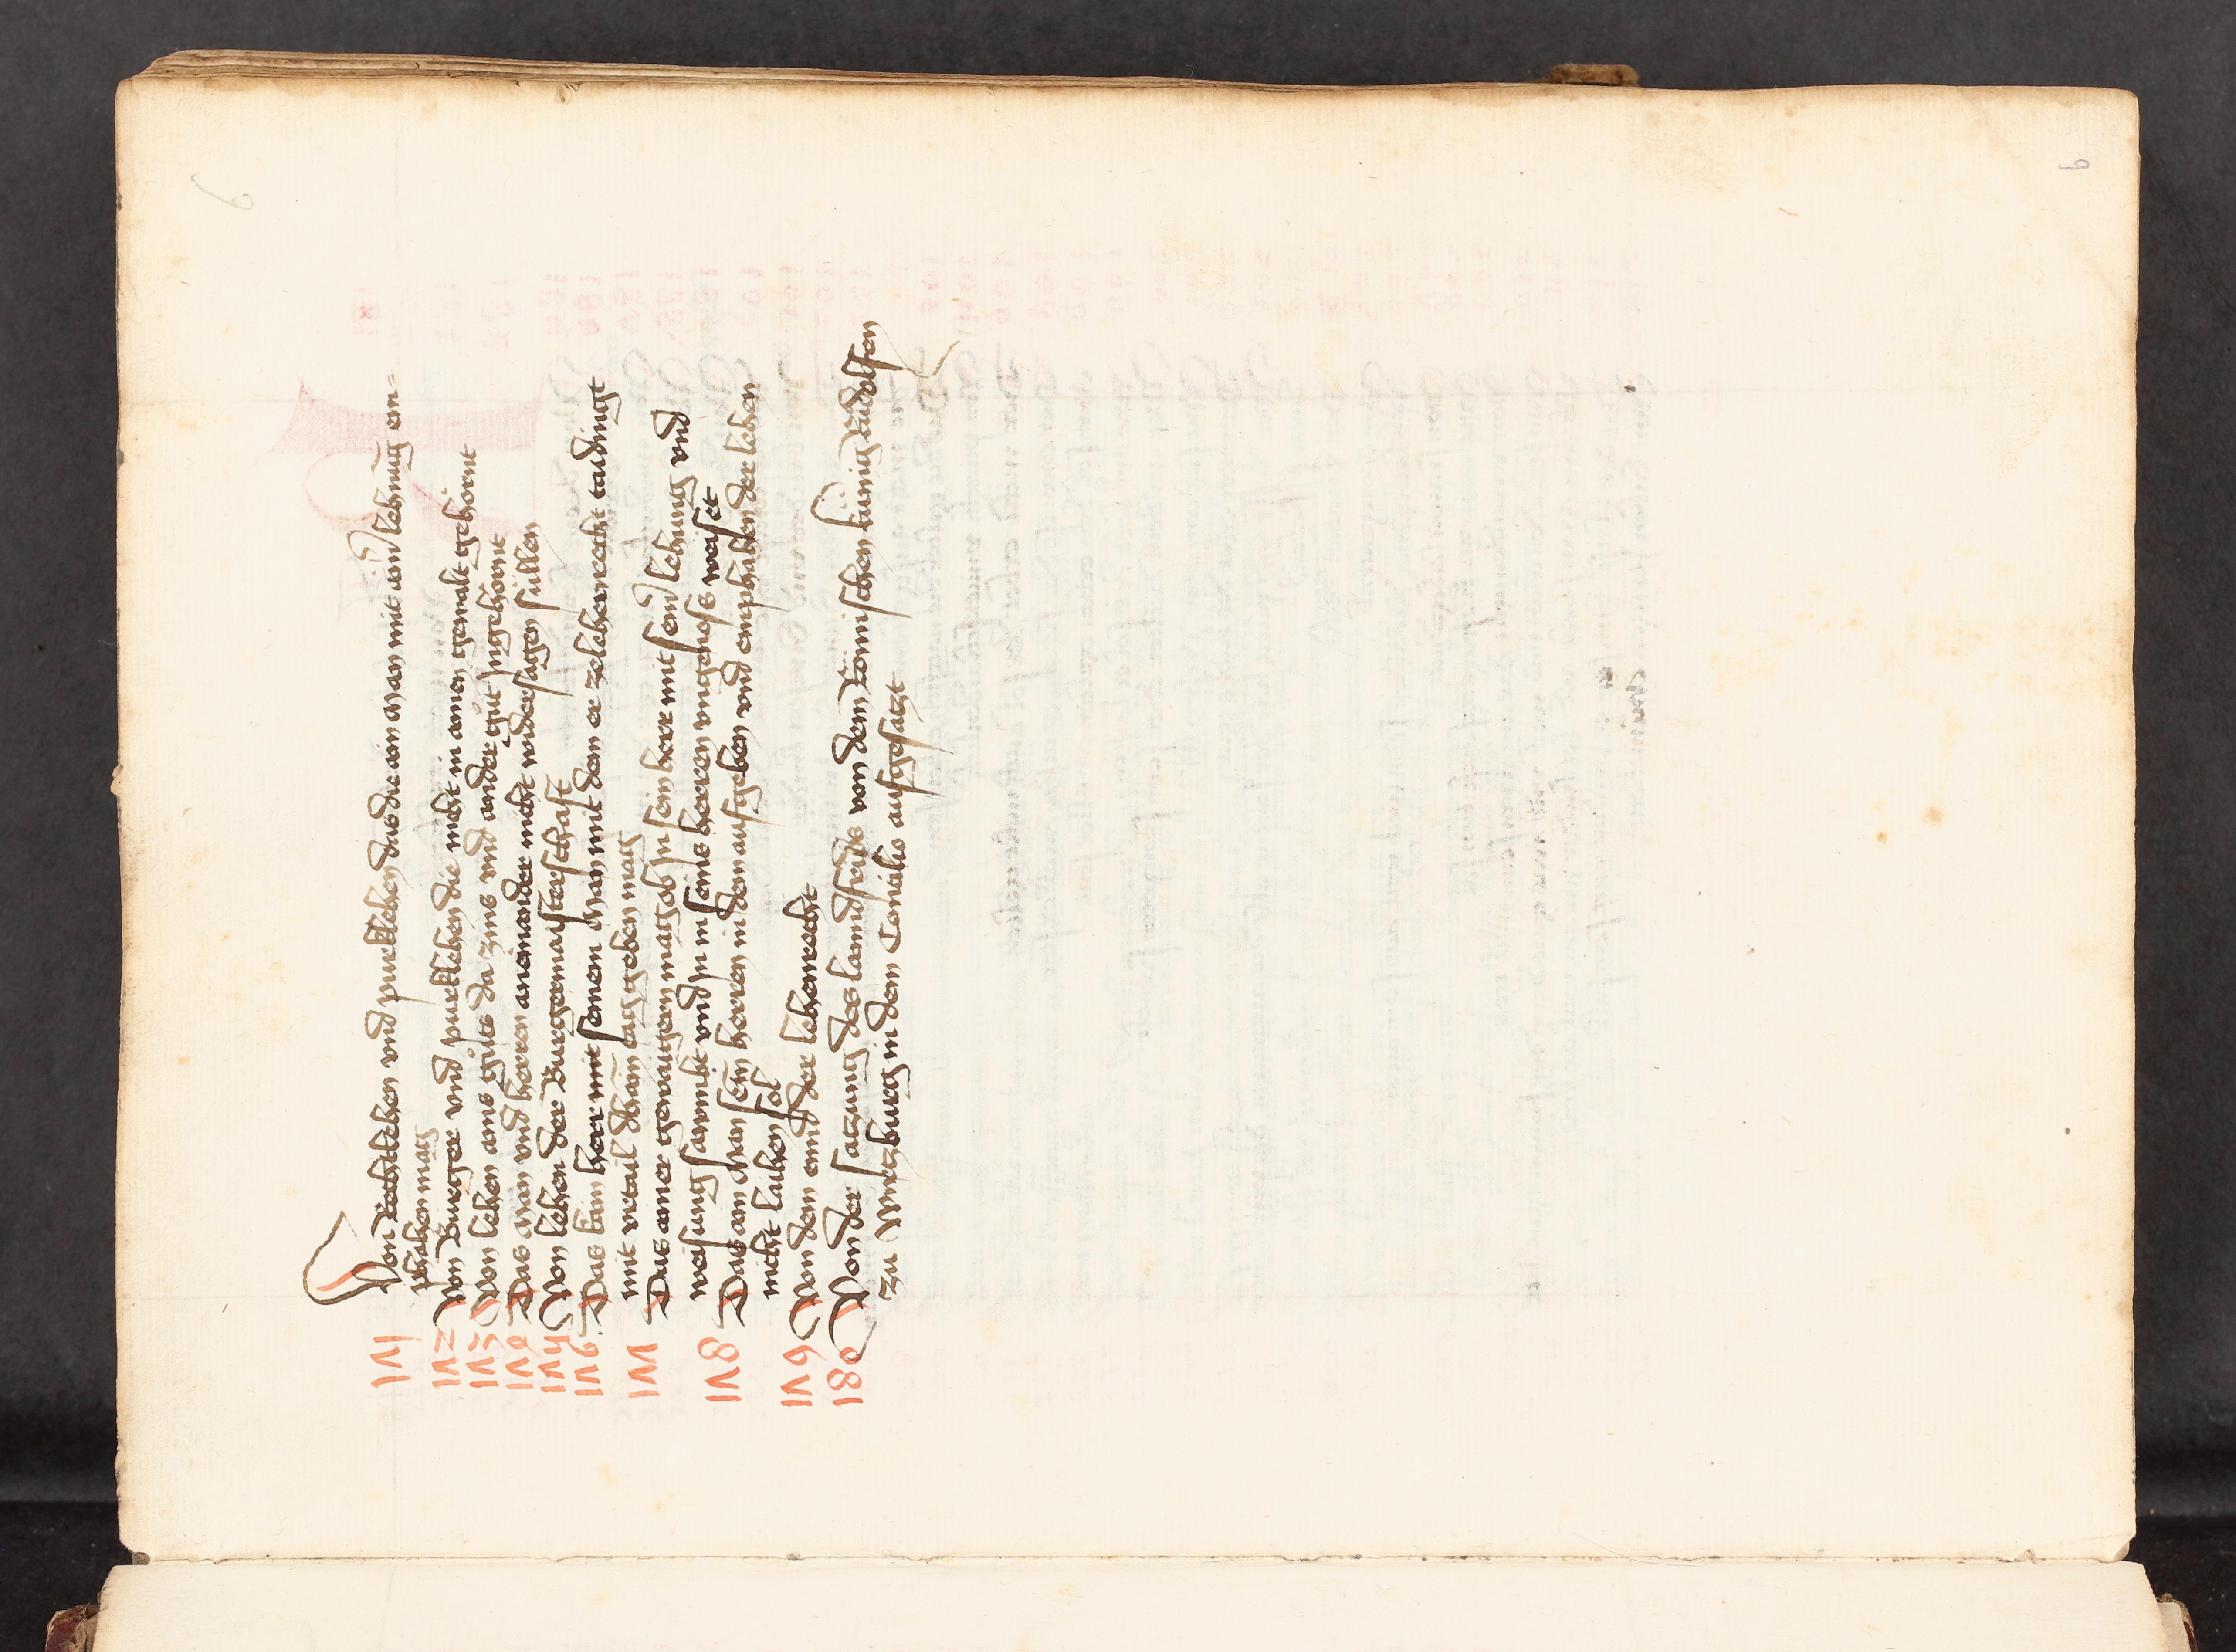 9
171 Von Rechtlehen vnd purklehen das die ain Man mit ain lehnũg em=
phahen mag
172 Von Burger vnd purklehen die nicht in ainen gewalt gehornt
173 Von lehen ains gůts da zins vnd ander gůt Ingehörnt
174 Das Man vnd herren aneinander nicht widersagen süllen
175 Von lehen der Burgermaisterschaft
176 Das kain herr mit seinem Man mit dem er zelehenrecht taidingt
mit vrtail kainñ tag geben mag
177 Das ainer gewaigern mag ob In sein herr mit send lehnung vnd
weisung sawmbt vnd In in seins herren vngenoss weiset
178 Das ain Man seim herren in dem aufgeben vnd emphahen der lehen
nicht laihen sol
179 Von dem ennd der lehenrecht
180 Von der satzung des lanndfrids von dem Römischen künig Rudolfen
zu Wirtzburg in dem Consilio aufgesatzt